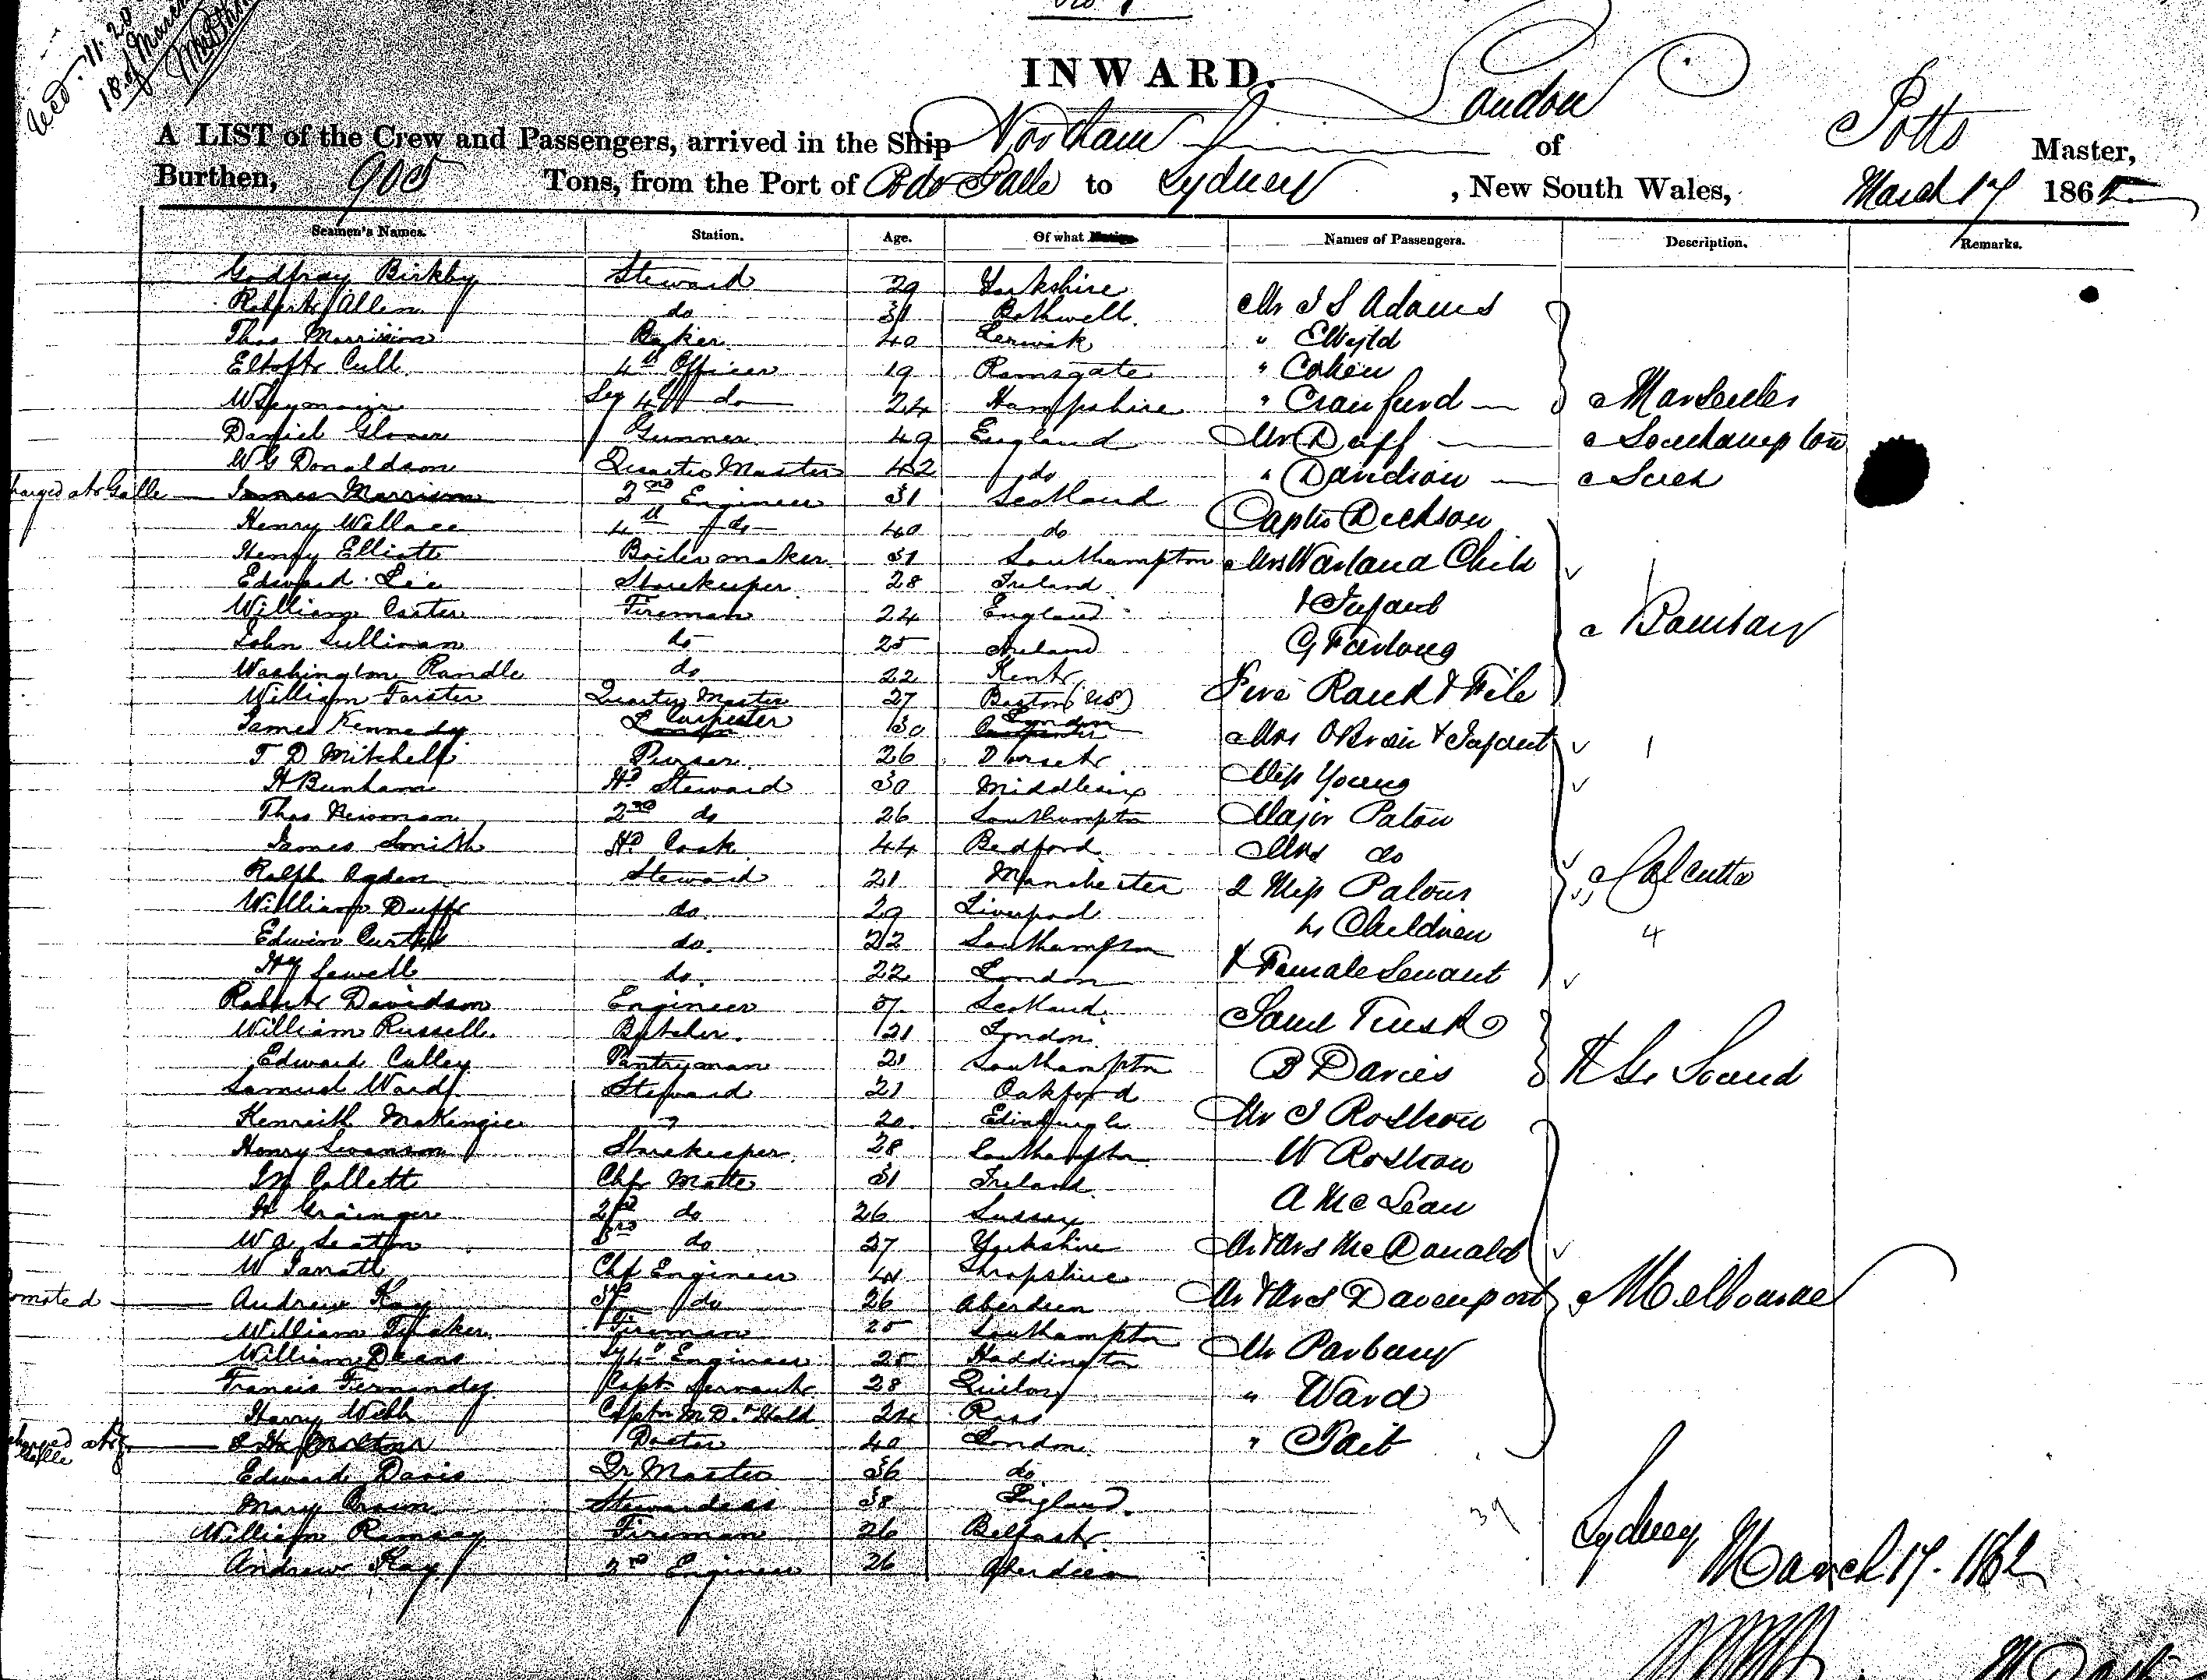 No 1
INWARD.
A LIST of the Crew and Passengers, arrived in the Ship Northam of London Potts Master,
Burthen, 900 Tons, from the Port of Pt de Galle to Sydney, New South Wales, March 17 1862
Seamen's Names. Station. Age. Of what Names of Passengers. Description. Remarks.
Godfray Birkby Steward 29 Yorkshire
Robert Allen do 31 Bothwell. Mr J S Adams
Thos Morrison Baker 40 Lerwick " E Wyld
Eltoft Cull 4th Officer 19 Ramsgate " Cohen
W Seymour 4th do 24 Hampshire " Craufurd Marseilles
Daniel Glover Gunner 49 England Mr Duff Southampton
W G Donaldson Quarter Master 42 do " Davidson Suez
charged at Galle James Morrison 2nd Engineer 31 Scotland
Henry Wallace 4th do 40 do Captn Dickson
Henry Elliott Boiler maker 31 Southampton Mrs Warland Child
Edward Lee Storekeeper 28 Ireland
William Carter Fireman 24 England & Infant Bombay
John Sullivan do 25 Ireland G Furlong
Washington Randle do 22 Kent
William Forster Quarter Master 27 Boston (US) Five Rank & File
James Kennedy Carpenter 30 London
T D Mitchell Purser 26 Dorset Mrs O'Brien & Infant 1
H Bunham Hd Steward 30 Middlesex Miss Young
Thos Newman 2nd do 26 Southampton Major Paton
James Smith Hd Cook 44 Bedford Mrs do
Ralph Ogden Steward 21 Manchester 2 Miss Patons Calcutta
William Duff do. 29 Liverpool
Edwin Curtis do. 22 Southampton 4 Children 4
Hy Sewell do. 22 London & Female Servant
Robert Davidson Engineer 37 Scotland
William Russell. Butcher. 21 London.
Edward Culley Pantryman 21 Southampton B Davies K Ge Sound
Samuel Ward Steward 21 Oakford
Kenneith MaKenzie 20 Edinburgh Mr J Rostron
Henry Swanson Storekeeper 28 Southampton W Rostron
Collett Chf Mate 31 Ireland
H Grainger 2nd do 26 Sussex A McLean
W A Seaton 3rd do 27 Yorkshire Mr & Mrs McDonald
W Jarratt Chf Engineer 41 Shropshire
omoted Andrew Kay 3rd do 26 Aberdeen Mr & Mrs Davenport Melbourne
William Fireman 25 Southampton
William Deans 4th Engineer 25 Haddington Mr Parbury
Francis Fernandez Capt Servant 28 Quilon " Ward
Harry Will 24 Ross
charged at Galle Doctor 40 London " Tait
Edward Davis Qr Master 36 do
Mary Stewardess 38 England.
William Ramsay Fireman 26 Belfast 39
Andrew Kay 2nd Engineer 26 Aberdeen
Sydney March 17. 1862